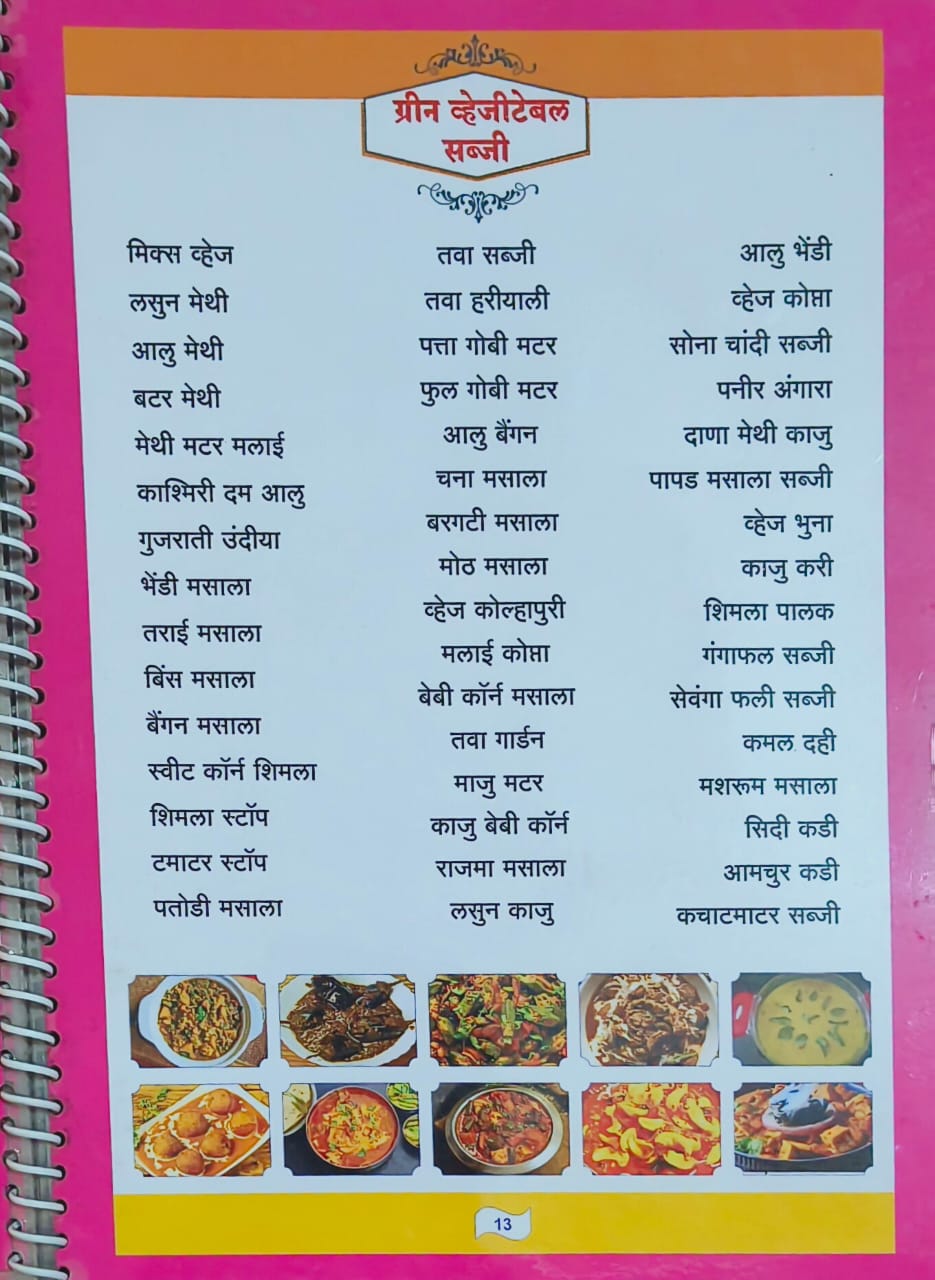 ग्रीन व्हेजीटेबल
सब्जी
मिक्स व्हेज
लसुन मेथी
आलु मेथी
बटर मेथी
मेथी मटर मलाई
काश्मिरी दम आलु
गुजराती उंदीया
भेंडी मसाला
तराई मसाला
बिंस मसाला
बैंगन मसाला
स्वीट कॉर्न शिमला
शिमला स्टॉप
टमाटर स्टॉप
पतोडी मसाला
तवा सब्जी
तवा हरीयाली
पत्ता गोबी मटर
फुल गोबी मटर
आलु बैंगन
चना मसाला
बरगटी मसाला
मोठ मसाला
व्हेज कोल्हापुरी
मलाई कोप्ता
बेबी कॉर्न मसाला
तवा गार्डन
माजु मटर
काजु बेबी कॉर्न
राजमा मसाला
लसुन काजु
आलु भेंडी
व्हेज कोप्ता
सोना चांदी सब्जी
पनीर अंगारा
दाणा मेथी काजु
पापड मसाला सब्जी
व्हेज भुना
काजु करी
शिमला पालक
गंगाफल सब्जी
सेवंगा फली सब्जी
कमल दही
मशरूम मसाला
सिदी कडी
आमचुर कडी
कचाटमाटर सब्जी
13